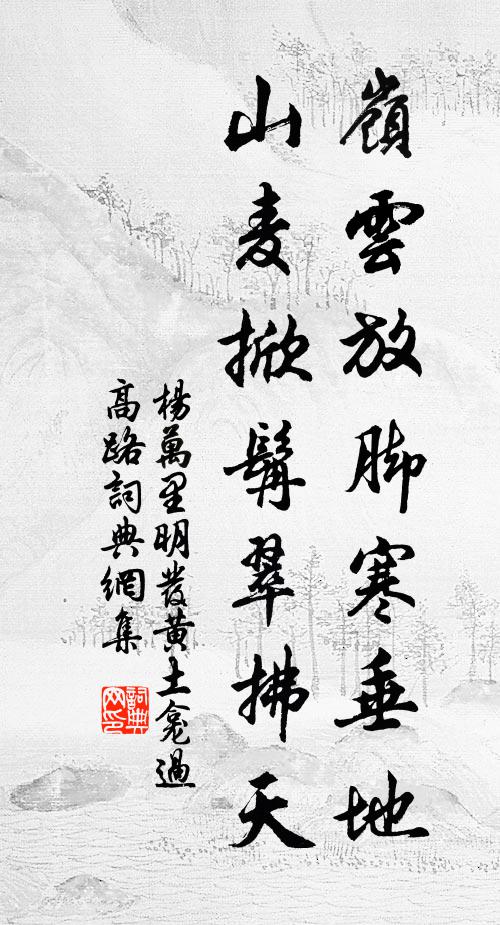 嶺雲放脚寒垂地
山麦掀髯翠拂天
楊萬里明發黄土龛過
高路詞典網集
詞典網印